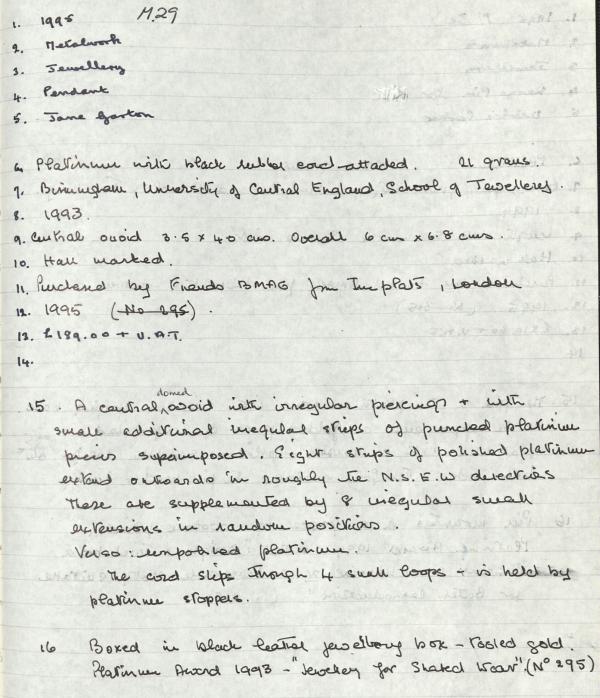 M.29
1. 1995
2. Metalwork
3. Jewellery
4. Pendant
5. Jane Garton
6. Platinum with black rubber cord attached. 21 grams.
7. Birmingham, University of Central England, School of Jewellery.
8. 1993.
9. Central ovoid 3.5 x 4.0 cms. Overall 6 cm x 6.8 cms.
10. Hall marked.
11. Purchased by Friends BMAG from Implats, London
12. 1995 (No 295).
13. £189.00 + V.A.T.
14.
15. A central domed ovoid with irregular piercings + with
small additional irregular strips of punched platinum
pieces superimposed. Eight strips of polished platinum
extend outwards in roughly the N.S.E.W directions
These are supplemented by 8 irregular small
extensions in random positions.
Verso: unpolished platinum.
The cord slips through 4 small loops + is held by
platinum stoppers.
16 Boxed in black leather jewellery box - tooled gold.
Platinum Award 1993 - "Jewellery for Shared Wear". (No 295)